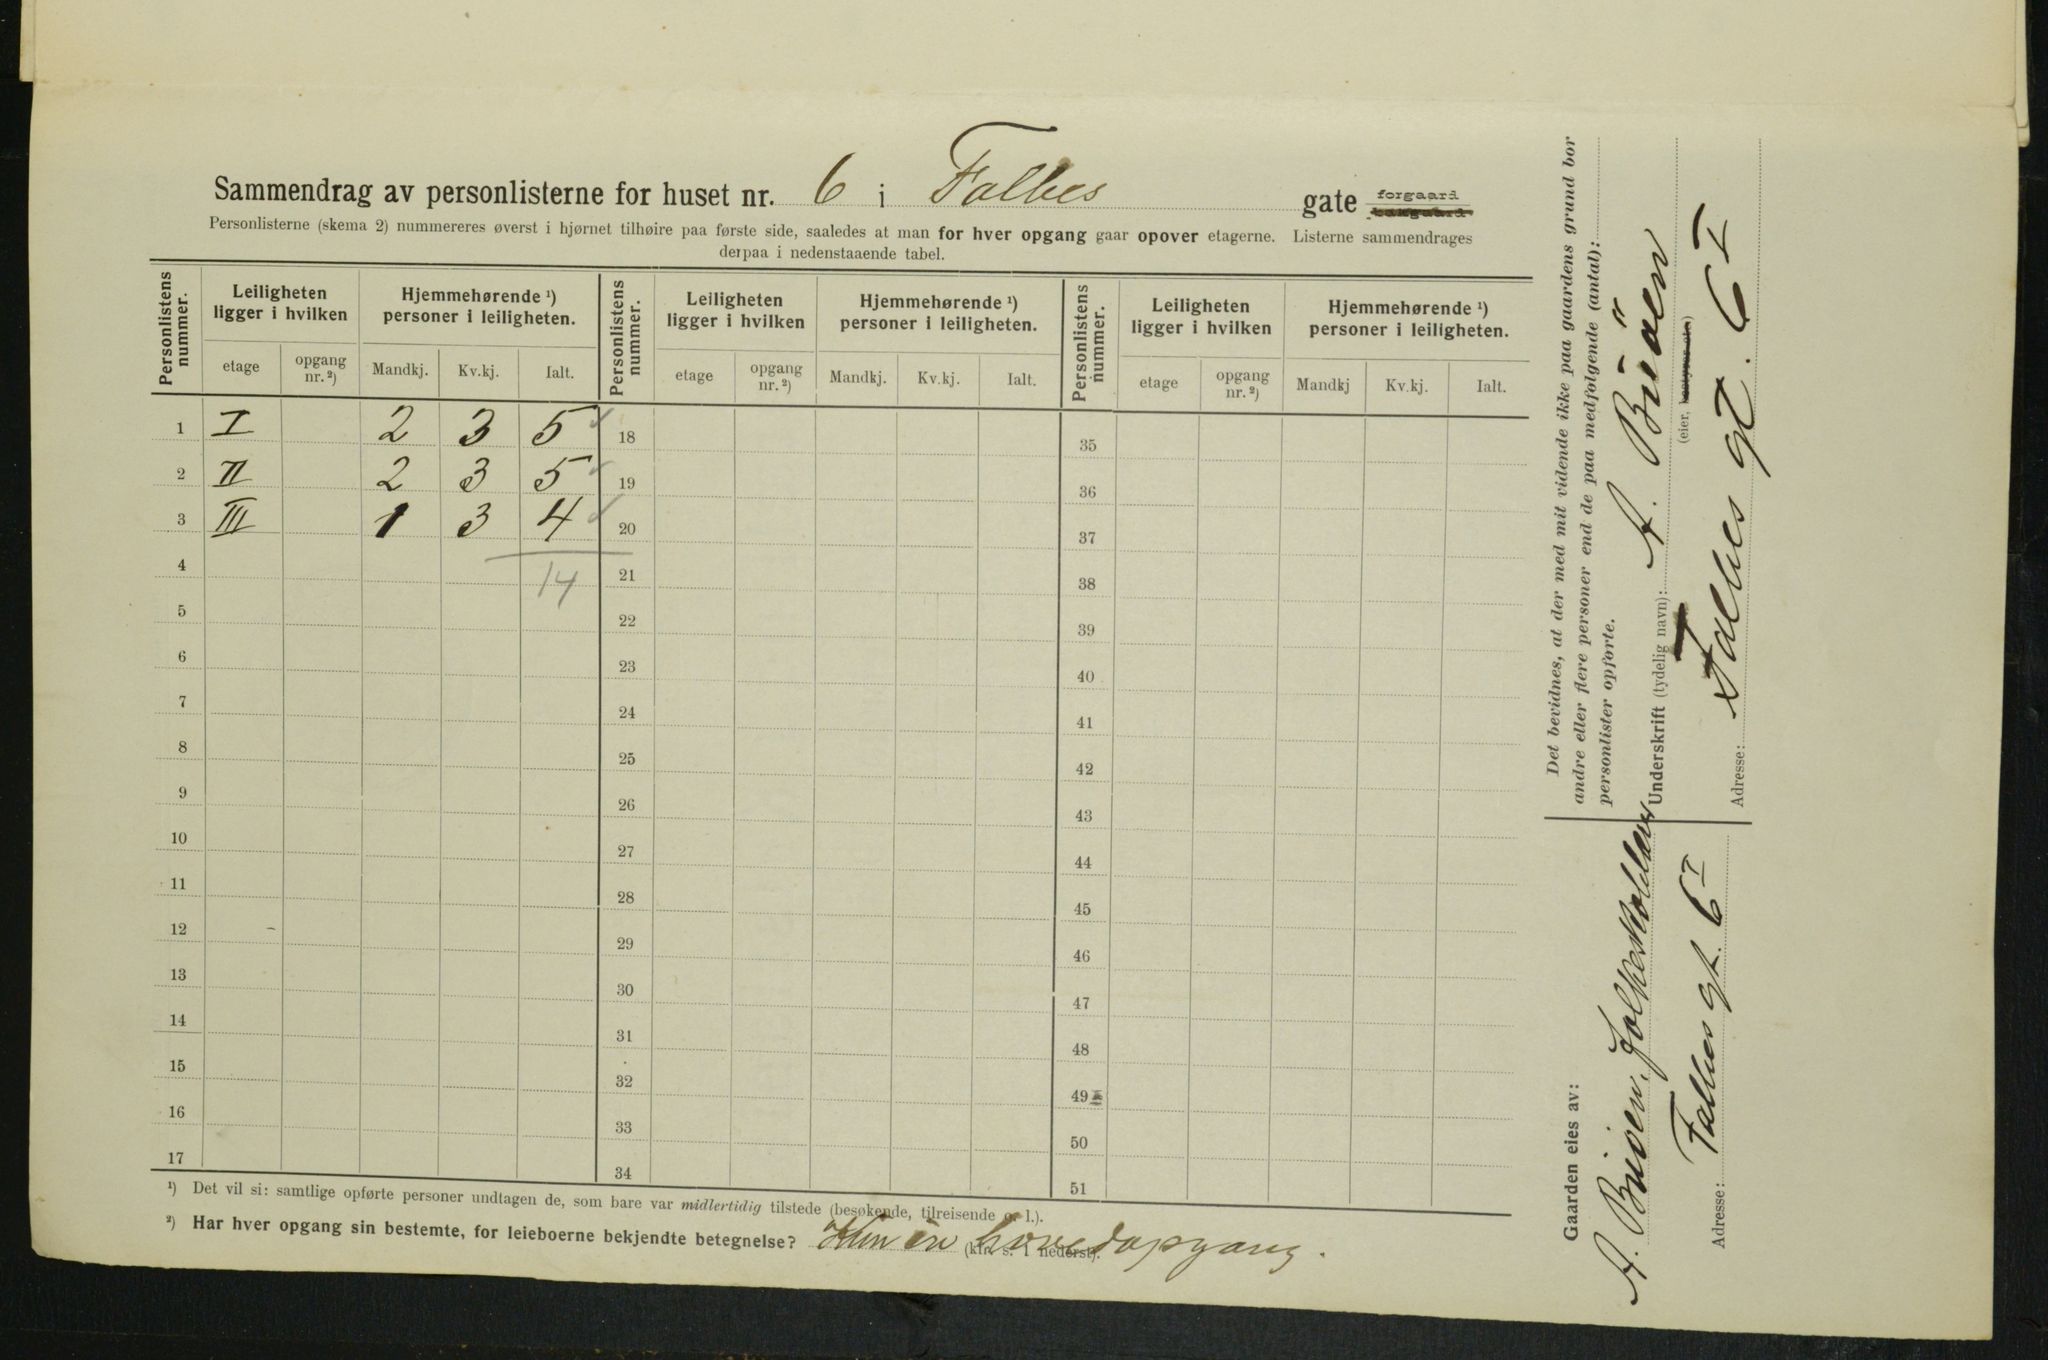 Sammendrag av personlisterne for huset nr. 6 i Falbes gate forgaard bakgaard
Personlisterne (skema 2) nummereres øverst i hjørnet tilhøire paa første side, saaledes at man for hver opgang gaar opover etagerne. Listerne sammendrages
derpaa i nedenstaaende tabel.
Personlistens nummer. Leiligheten ligger i hvilken Hjemmehørende ¹) personer i leiligheten. Personlistens nummer. Leiligheten ligger i hvilken Hjemmehørende ¹) personer i leiligheten. Personlistens nummer. Leiligheten ligger i hvilken Hjemmehørende ¹) personer i leiligheten.
etage opgang nr. ²) Mandkj. Kv.kj. Ialt. etage opgang nr. ²) Mandkj. Kv.kj. Ialt. etage opgang nr. ²) Mandkj Kv.kj. Ialt.
1 I 2 3 5 18 35
2 II 2 3 5 19 36
3 III 1 3 4 20 37
4 14 21 38
5 22 39
6 23 40
7 24 41
8 25 42
9 26 43
10 27 44
11 28 45
12 29 46
13 30 47
14 31 48
15 32 49
16 33 50
17 34 51
¹) Det vil si: samtlige opførte personer undtagen de, som bare var midlertidig tilstede (besøkende, tilreisende o. l.).
²) Har hver opgang sin bestemte, for leieboerne bekjendte betegnelse? Kun én hovedopgang.
(kfr. s. 1 nederst).
Det bevidnes, at der med mit vidende ikke paa gaardens grund bor
andre eller flere personer end de paa medfølgende (antal):
personlister opførte.
Underskrift (tydelig navn): A. Buöen
(eier, bestyrer etc.)
Adresse: Falbes gt. 6 I
Gaarden eies av:
A. Buöen,
Adresse: Falbes gt. 6 I